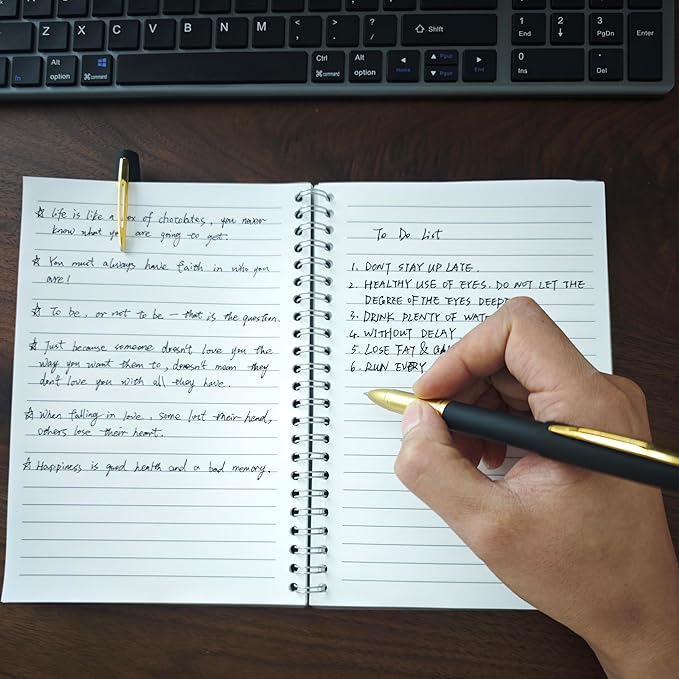 Z X C V B N M < , > . ? / Shift 1 End 2 3 PgDn Enter
fn Alt option command Ctrl command Alt option Home PgUp PgDn End 0 Ins . Del
☆ Life is like a box of chocolates, you never
know what you are going to get.
☆ You must always have faith in who you
are!
☆ To be, or not to be — that is the question.
☆ Just because someone doesn't love you the
way you want them to, doesn't mean they
don't love you with all they have.
☆ When falling in love, some lost their head,
others lose their heart.
☆ Happiness is good health and a bad memory.
To Do List
1. DON'T STAY UP LATE.
2. HEALTHY USE OF EYES. DO NOT LET THE
DEGREE OF THE EYES
3. DRINK PLENTY OF
4. WITHOUT DELAY
5. LOSE FAT &
6. RUN EVERY